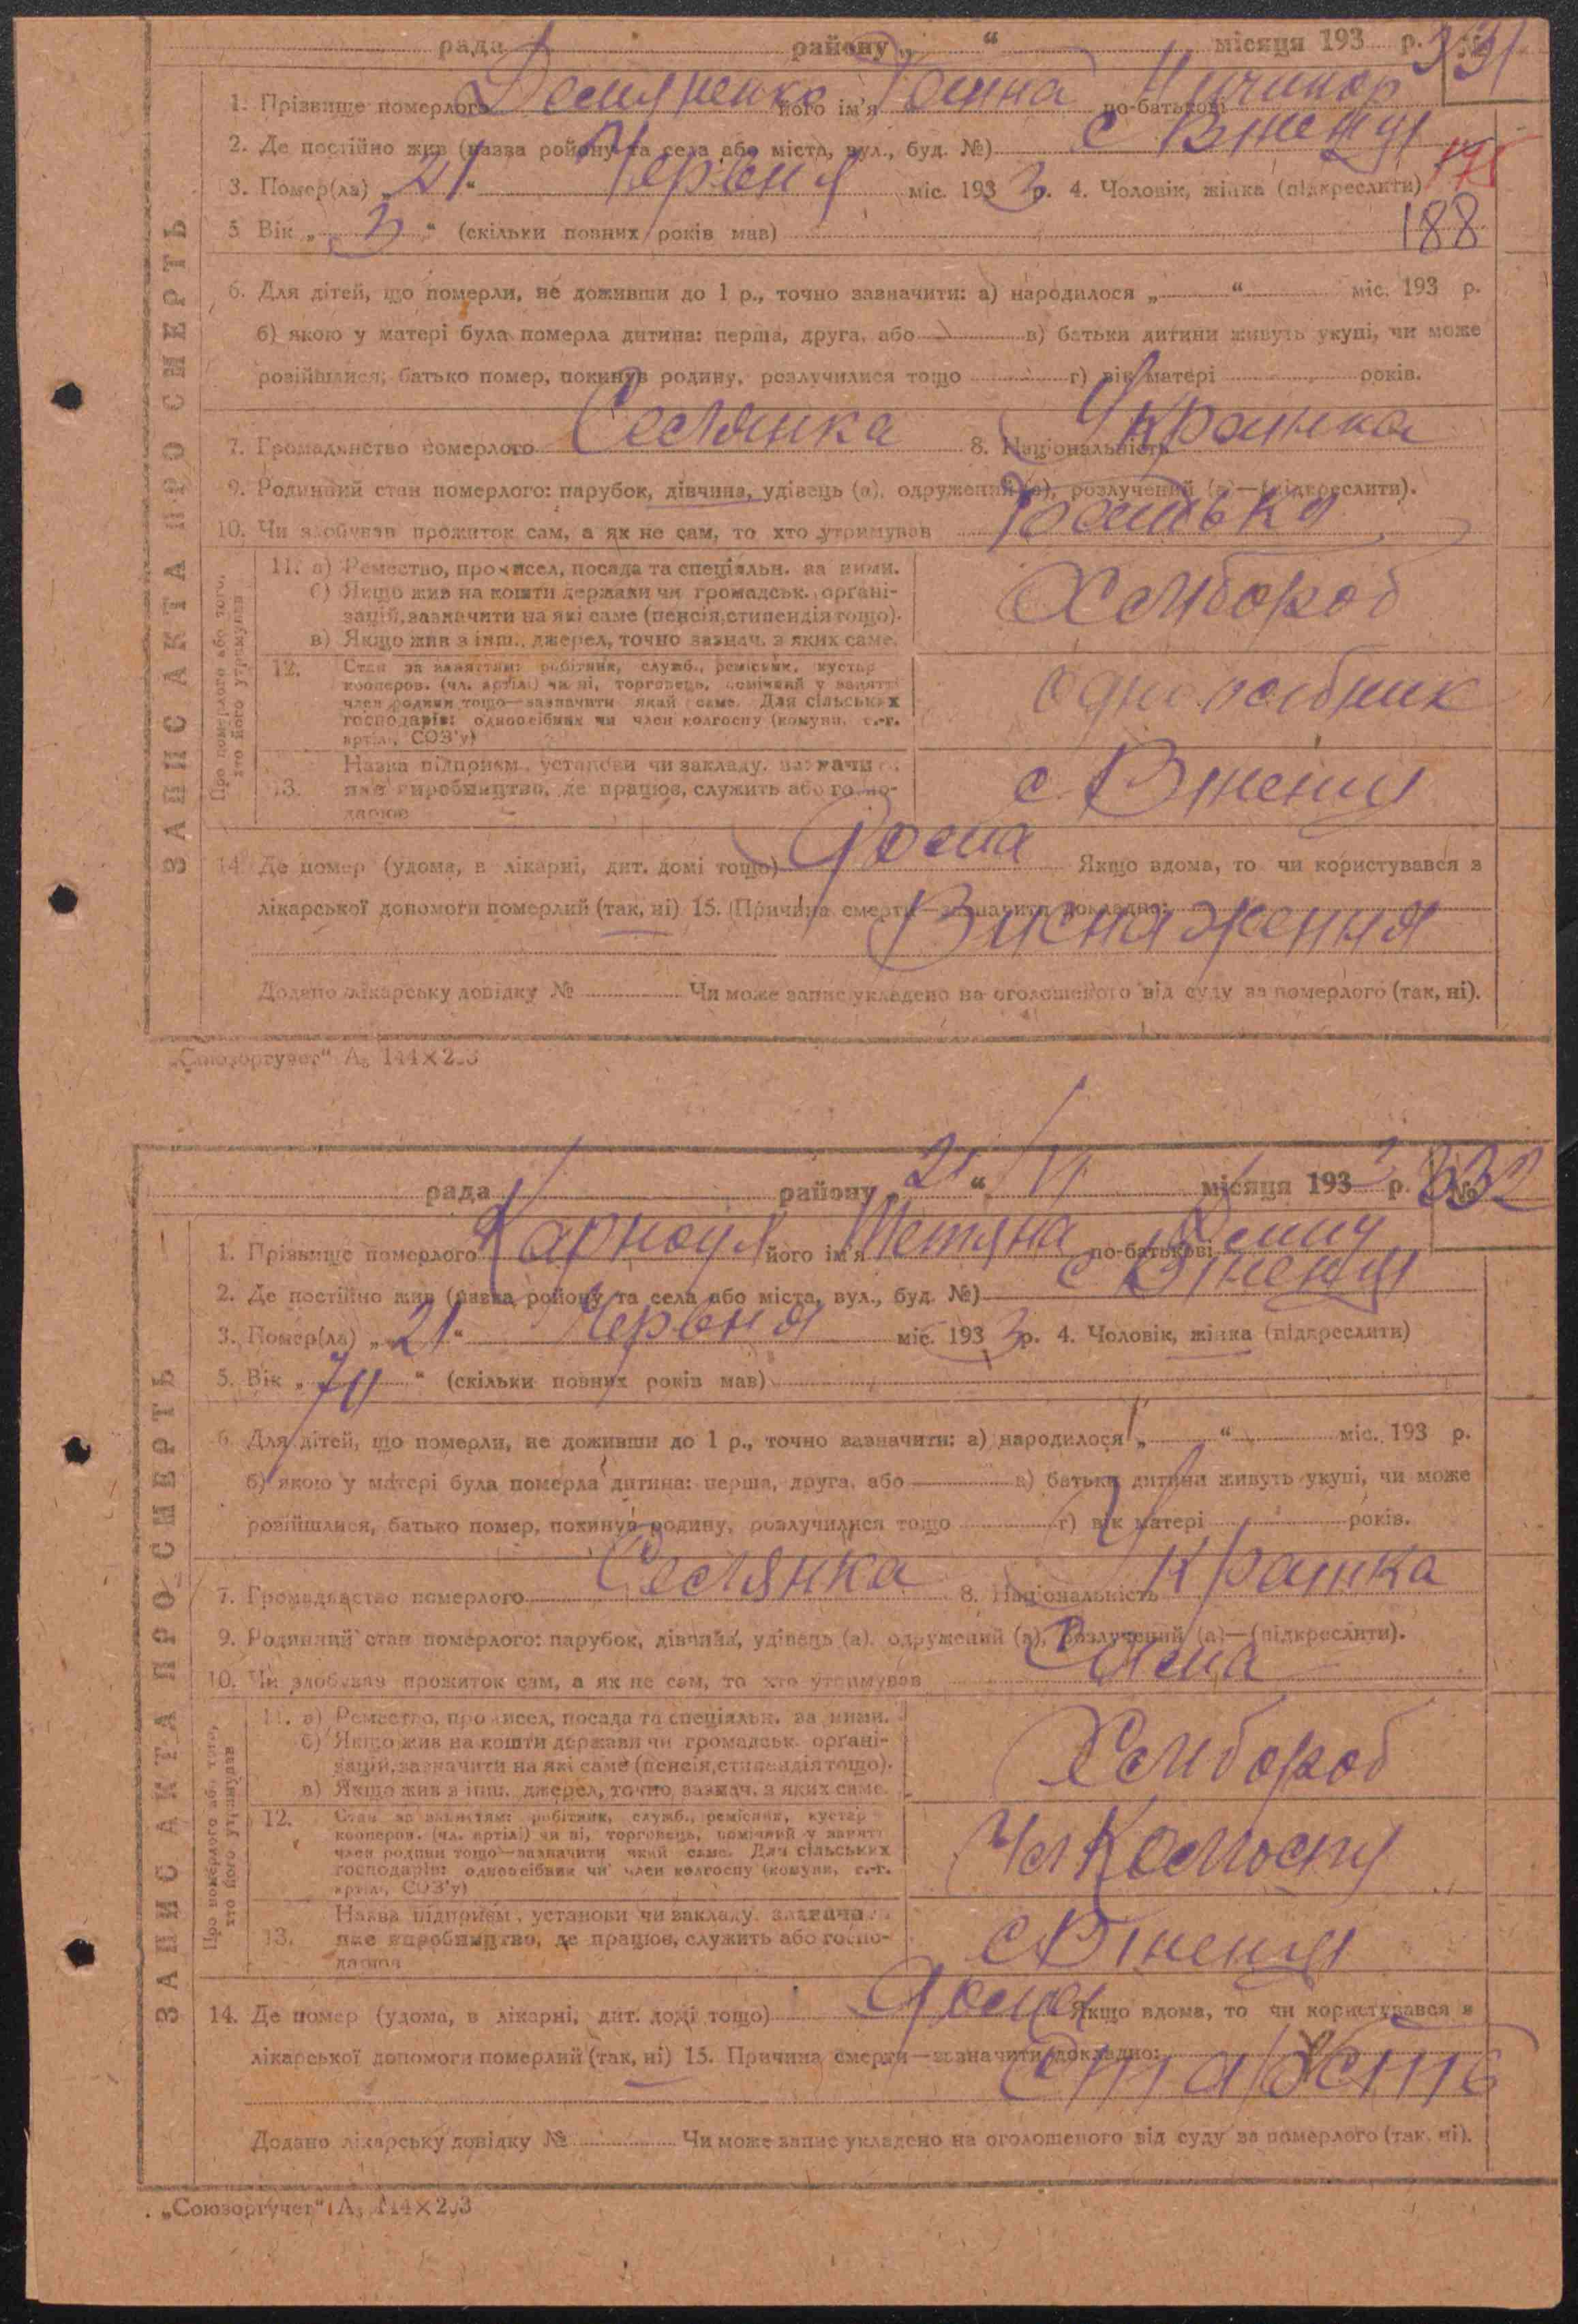 рада района „ “ місяця 193 р. № 331
1. Прізвище померлого Демяненко його ім'я Ганна по-батькові Ничипор
2. Де постійно жив (назва ройону та села або міста, вул., буд. №) с
175
3. Помер(ла) „21“ Червня міс. 193 3 р. 4. Чоловік, жінка (підкреслити)
188
5 Вік „ 3 “ (скільки повних років мав)
6. Для дітей, що померли, не доживши до 1 р., точно зазначити: а) народилося „ “ міс. 193 р.
б) якою у матері була померла дитина: перша, друга, або в) батьки дитини живуть укупі, чи може
розійшлися, батько помер, покинув родину, розлучилися тощо г) вік матері років.
7. Громадянство померлого Селянка 8. Національність Украинка
9. Родинний стан померлого: парубок, дівчина, удівець (а), одружений (а), розлучений (а)—(підкреслити).
10. Чи здобував прожиток сам, а як не сам, то хто утримував Батько
ЗАПИС АКТА ПРО СМЕРТЬ
Про померлого або того, хто його утримував
11. а) Ремество, промисел, посада та спеціяльн. за ними.
б) Якщо жив на кошти держави чи громадськ. органі-
зацій, зазначити на які саме (пенсія, стипендія тощо).
в) Якщо жив з інш. джерел, точно зазнач. з яких саме.
Хлибороб
12. Стан за заняттям: робітник, служб., ремісник, кустар
кооперов. (чл. артілі) чи ні, торговець, помічний у занятті
член родини тощо—зазначити який саме. Для сільських
господарів: одноосібник чи член колгоспу (комуни, с.-г.
артілі, СОЗ'у)
Одноосібник
13. Назва підприєм., установи чи закладу, зазначи
яке виробництво, де працює, служить або госпо-
дарює
с.
14 Де помер (удома, в лікарні, дит. домі тощо) Дома Якщо вдома, то чи користувався з
лікарської допомоги померлий (так, ні) 15. Причина смерти—зазначити докладно:
Виснаження
Додано лікарську довідку № Чи може запис укладено на оголошеного від суду за померлого (так, ні).
„Союзоргучет“ А₅ 144×203
рада району „ 21 “ VI місяця 193 3 р. № 332
1. Прізвище померлого його ім'я Тетяна по-батькові
2. Де постійно жив (назва ройону та села або міста, вул., буд. №) с
3. Помер(ла) „ 21 “ Червня міс. 193 3 р. 4. Чоловік, жінка (підкреслити)
5. Вік „ “ (скільки повних років мав)
6. Для дітей, що померли, не доживши до 1 р., точно зазначити: а) народилося „ “ міс. 193 р.
б) якою у матері була померла дитина: перша, друга, або в) батьки дитини живуть укупі, чи може
розійшлися, батько помер, покинув родину, розлучилися тощо г) вік матері років.
7. Громадянство померлого Селянка 8. Національність Украинка
9. Родинний стан померлого: парубок, дівчина, удівець (а), одружений (а), розлучений (а)—(підкреслити).
10. Чи здобував прожиток сам, а як не сам, то хто утримував Сама
ЗАПИС АКТА ПРО СМЕРТЬ
Про померлого або того, хто його утримував
11. а) Ремество, промисел, посада та спеціяльн. за ними.
б) Якщо жив на кошти держави чи громадськ. органі-
зацій, зазначити на які саме (пенсія, стипендія тощо).
в) Якщо жив з інш. джерел, точно зазнач. з яких саме.
Хлибороб
12. Стан за заняттям: робітник, служб., ремісник, кустар
кооперов. (чл. артілі) чи ні, торговець, помічний у занятті
член родини тощо—зазначити який саме. Для сільських
господарів: одноосібник чи член колгоспу (комуни, с.-г.
артілі, СОЗ'у)
Чл Колгоспу
13. Назва підприєм., установи чи закладу, зазначи
яке виробництво, де працює, служить або госпо-
дарює
с
14. Де помер (удома, в лікарні, дит. домі тощо) Дома Якщо вдома, то чи користувався з
лікарської допомоги померлий (так, ні) 15. Причина смерти—зазначити докладно:
Додано лікарську довідку № Чи може запис укладено на оголошеного від суду за померлого (так, ні).
„Союзоргучет“ А₅ 144×203